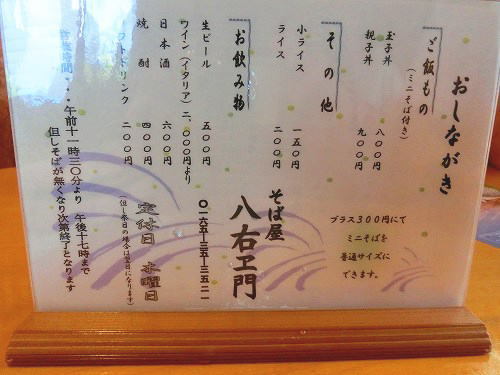 おしながき
ご飯もの
(ミニそば付き)
玉子丼 八〇〇円
親子丼 九〇〇円
プラス300円にて
ミニそばを
普通サイズに
できます。
その他
小ライス 一五〇円
ライス 二〇〇円
お飲み物
生ビール 五〇〇円
ワイン(イタリア)二、〇〇〇円より
日本酒 六〇〇円
焼酎 四〇〇円
ソフトドリンク 二〇〇円
そば屋
八右ヱ門
〇一六五ー三五ー三五二一
定休日 水曜日
(但し祭日の場合は翌日になります)
営業時間・・・午前十一時三〇分より 午後十七時まで
但しそばが無くなり次第終了となります